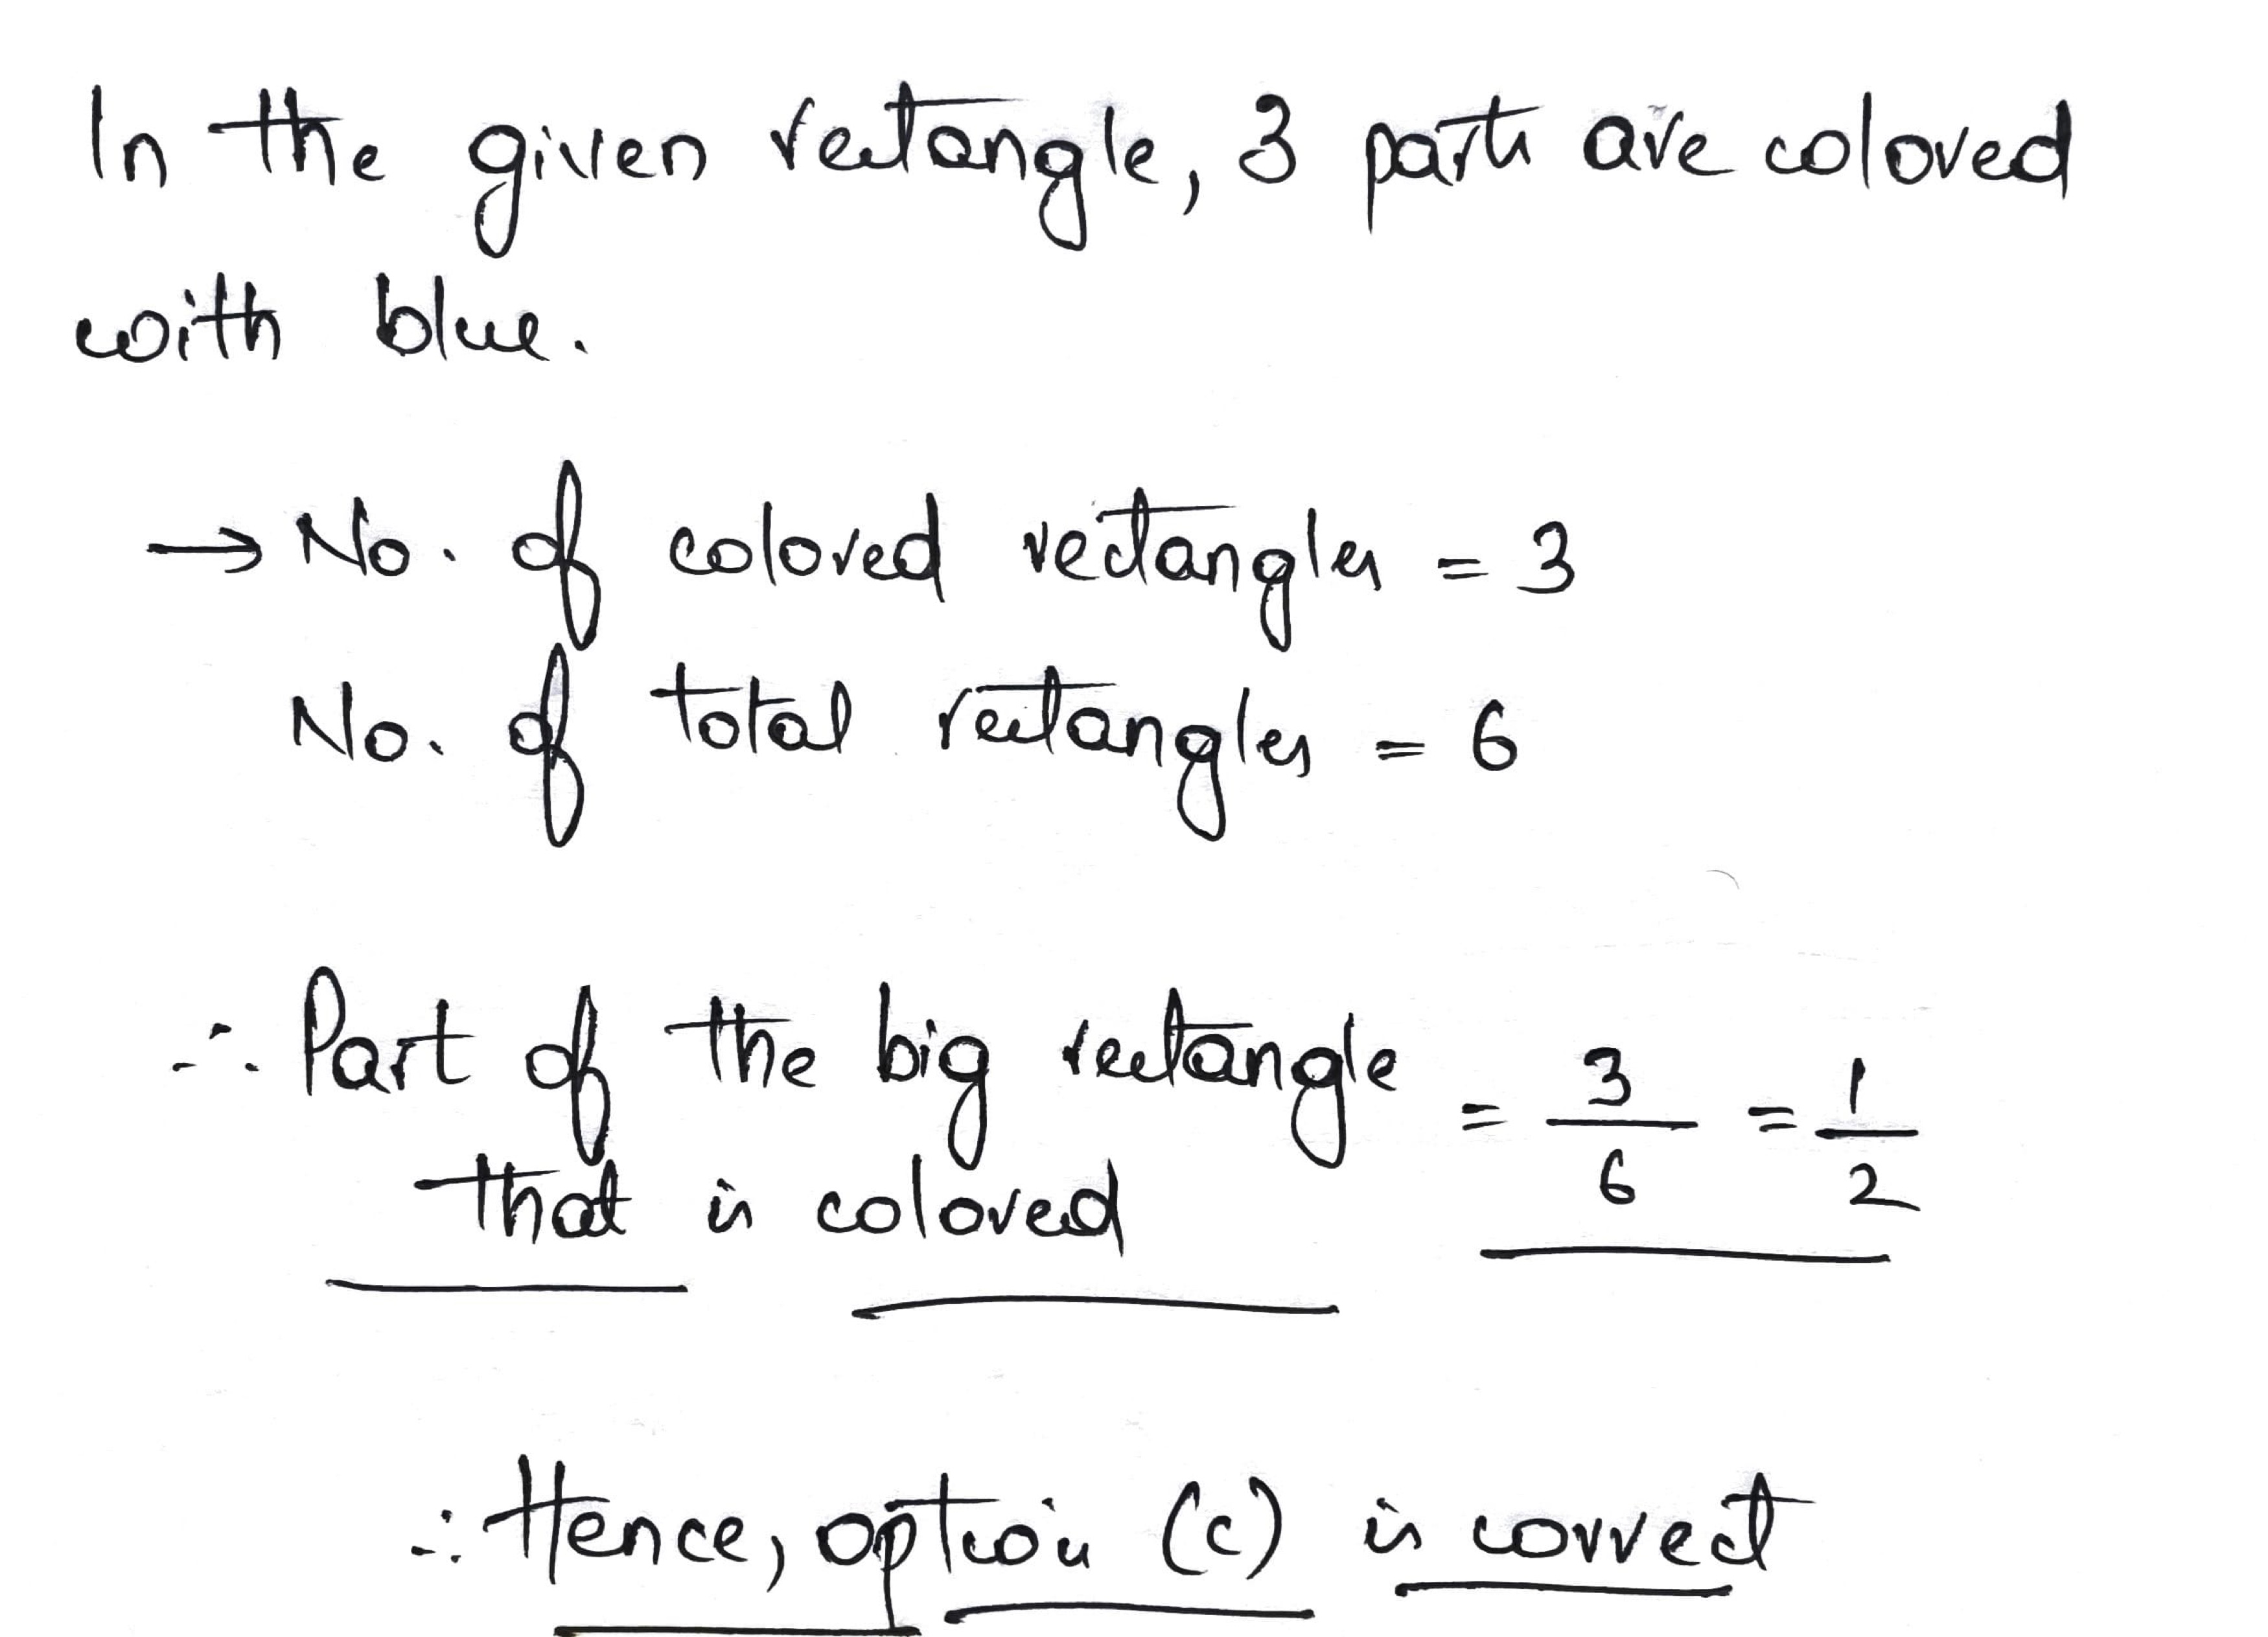 In the given rectangle, 3 parts are colored
with blue.
→ No. of colored rectangles = 3
No. of total rectangles = 6
∴ Part of the big rectangle = 3/6 = 1/2
that is colored
∴ Hence, option (c) is correct